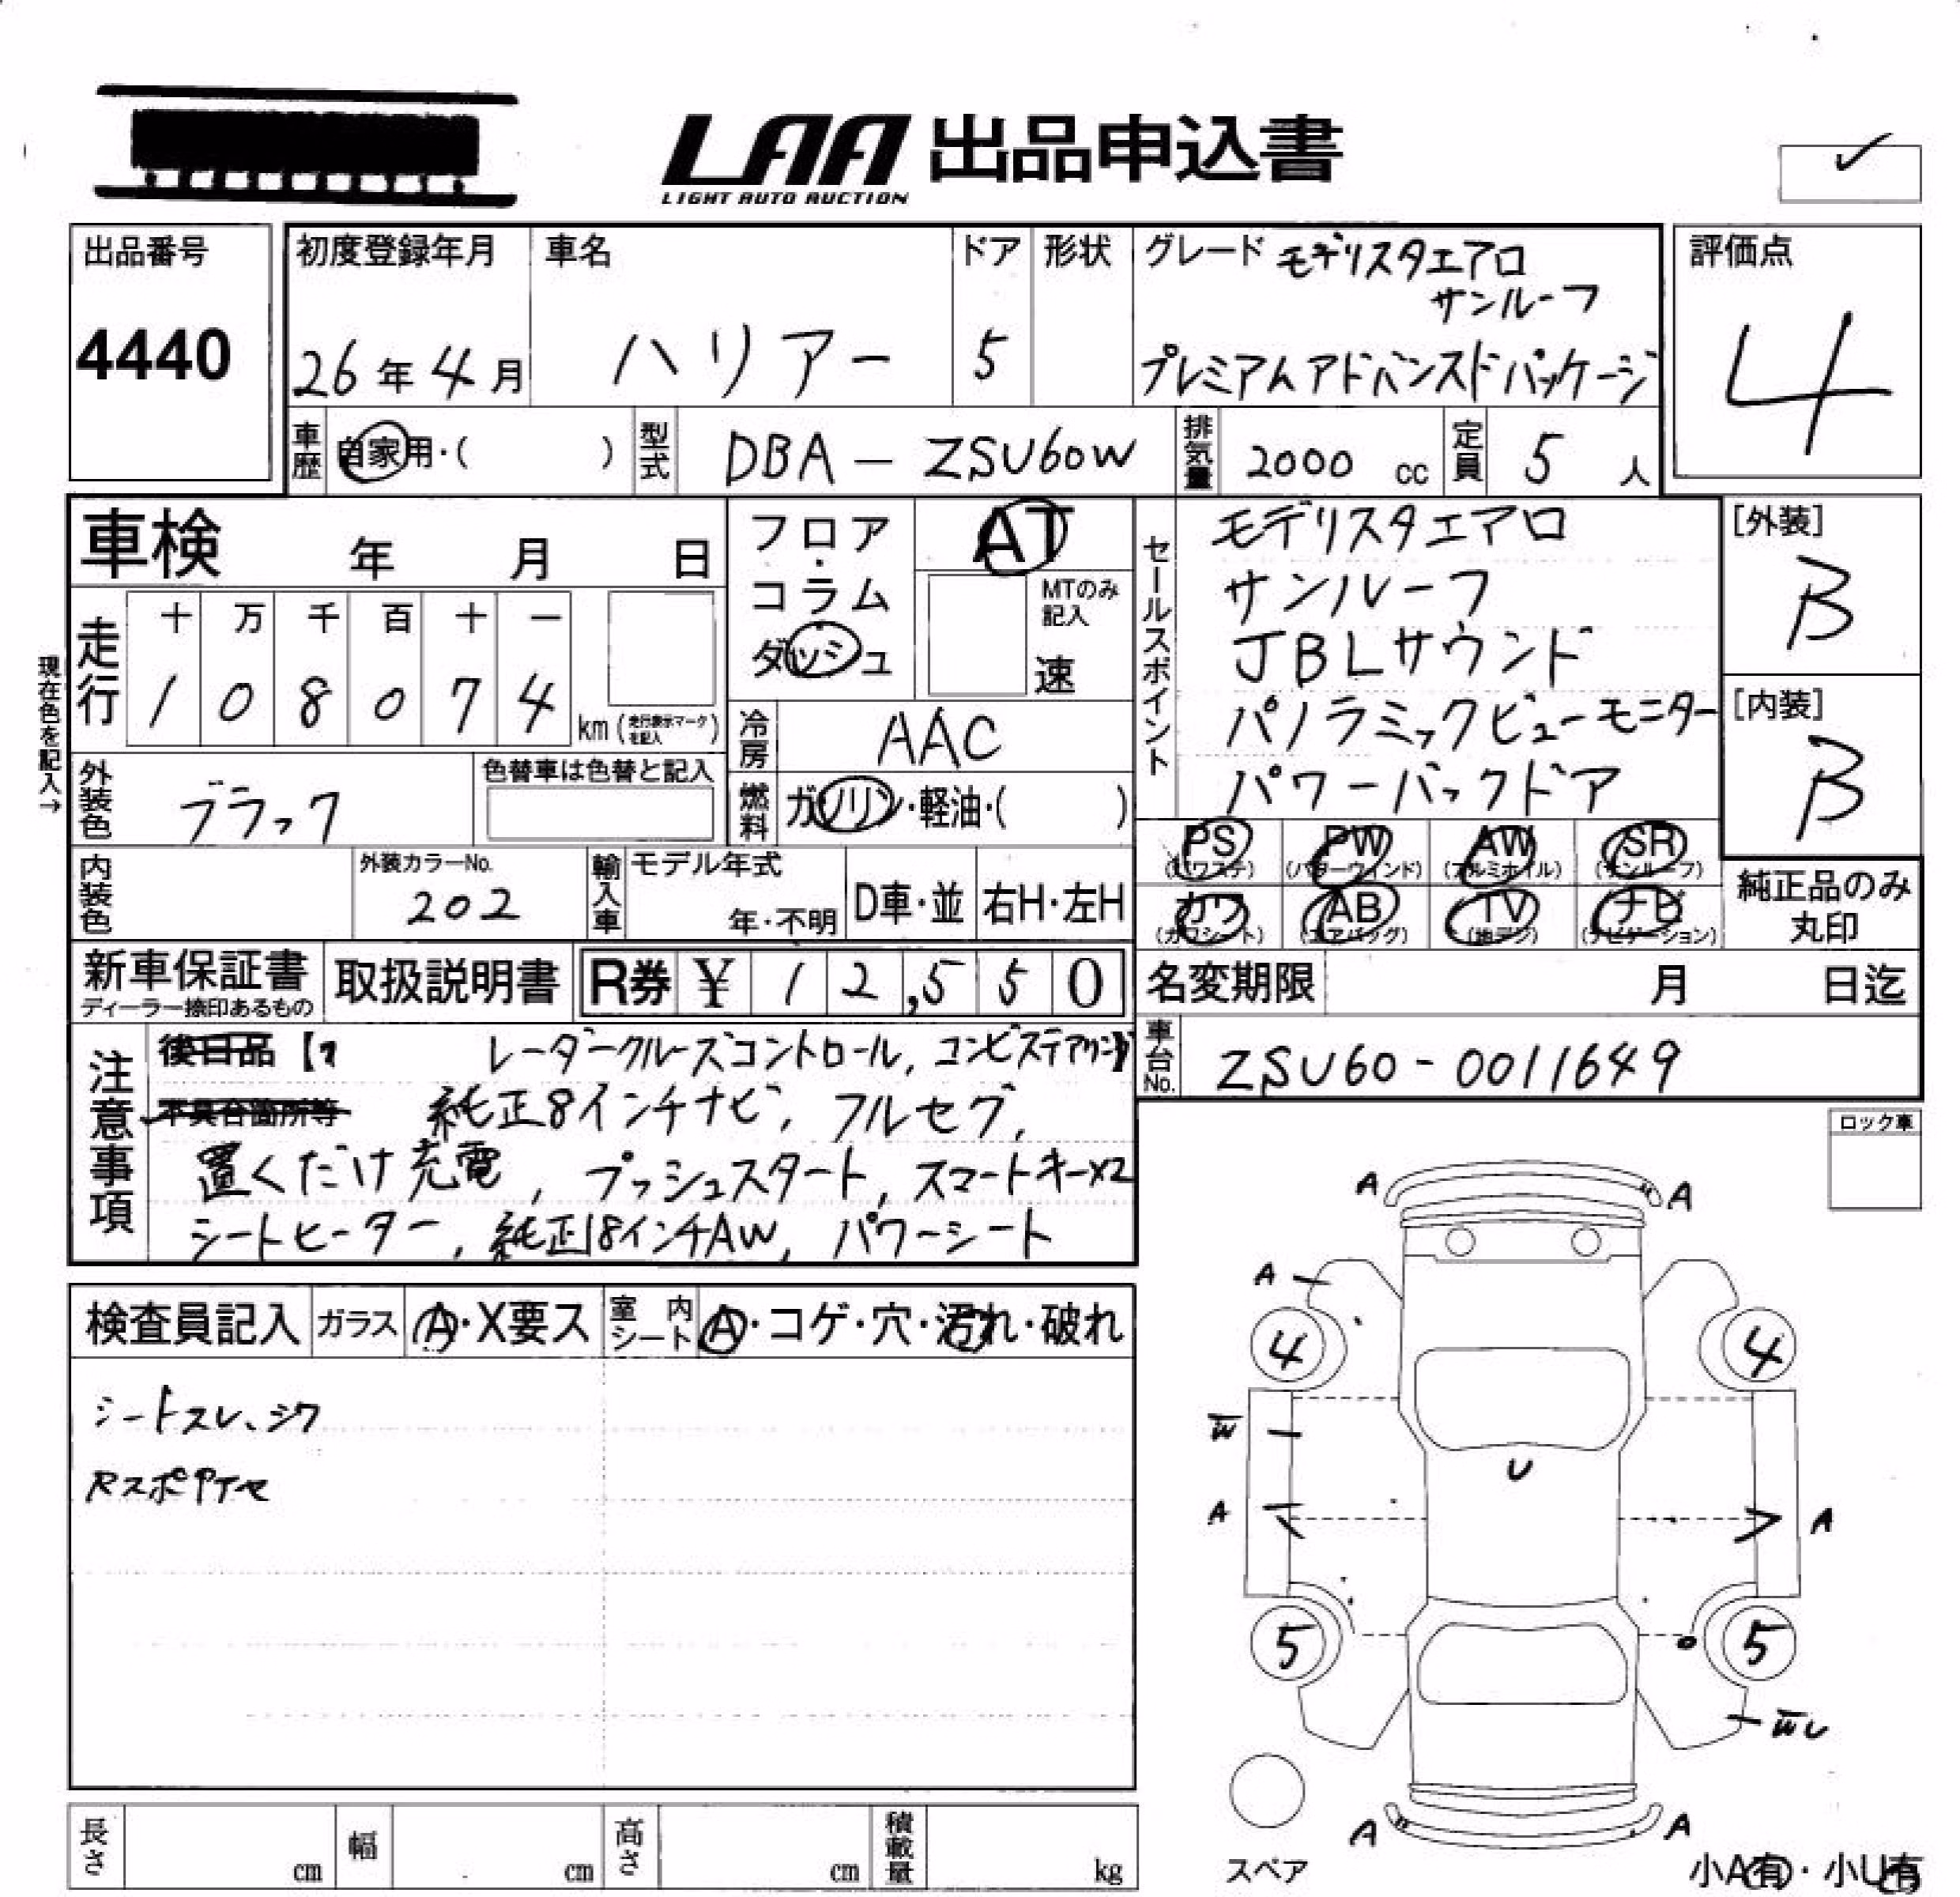 LAA 出品申込書
LIGHT AUTO AUCTION
✓
出品番号
4440
初度登録年月
26年4月
車名
ハリアー
ドア
5
形状
グレード モデリスタエアロ
サンルーフ
プレミアムアドバンスドパッケージ
評価点
4
車歴 自家用・( )
型式 DBA-ZSU60W
排気量 2000 cc
定員 5 人
車検 年 月 日
フロア・コラム・ダッシュ
AT
MTのみ記入
速
セールスポイント
モデリスタエアロ
サンルーフ
JBLサウンド
パノラミックビューモニター
パワーバックドア
[外装]
B
[内装]
B
現在色を記入→
走行
十 万 千 百 十 一
1 0 8 0 7 4
km(走行表示マークを記入)
冷房 AAC
外装色 ブラック
色替車は色替と記入
燃料 ガソリン・軽油・( )
PS (パワステ) PW (パワーウィンド) AW (アルミホイル) SR (サンルーフ)
カワ (カワシート) AB (エアバッグ) TV (地デジ) ナビ (ナビゲーション)
純正品のみ丸印
内装色
外装カラーNo.
202
輸入車 モデル年式
年・不明
D車・並 右H・左H
新車保証書
ディーラー捺印あるもの
取扱説明書
R券 ¥ 12,550
名変期限 月 日迄
車台No. ZSU60-0011649
注意事項
後日品【 レーダークルーズコントロール, コンビステアリング】
不具合箇所等 純正8インチナビ, フルセグ,
置くだけ充電, プッシュスタート, スマートキー×2
シートヒーター, 純正18インチAW, パワーシート
ロック車
検査員記入 ガラス A・X要ス 室内シート A・コゲ・穴・汚れ・破れ
シートスレ、シワ
A A
A
4 4
W
U
A A
5 5
WU
A A
スペア
小A有・小U有
長さ cm 幅 cm 高さ cm 積載量 kg